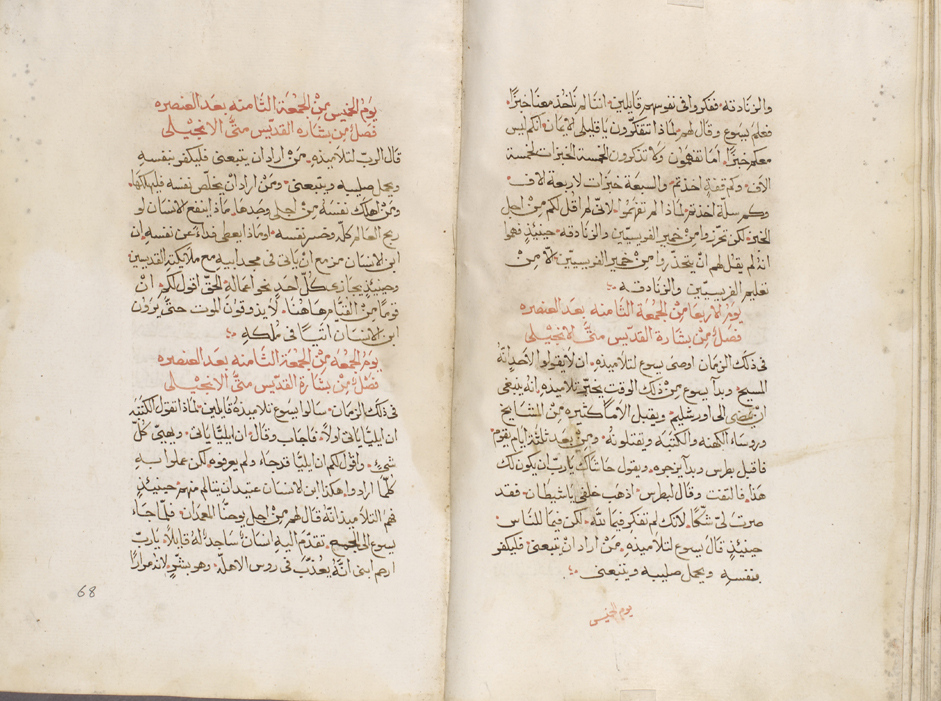 والزنادقه ففكروا في نفوسهم قايلين اننا لم ناخذ معنا خبزًا
فعلم يسوع وقال لهم لماذا تتفكرون يا قليلي الايمان انكم ليس
معكم خبزًا اما تفهمون ولا تذكرون الخمسة الخبزات لخمسة
الاف وكم قفة اخذتم والسبعة خبزات لاربعة الاف
وكم سلّة اخذتم لماذا لم تفهموا لانّي لم اقل لكم من اجل
الخبز لكن تحرزوا من خمير الفريسيّين والزنادقه حينيذٍ فهموا
انه لم يقل لهم انْ يتحذّروا من خمير الفريسيّين الّا مِنْ
تعليم الفريسيّين والزنادقه
يوم الاربعا من الجمعة الثامنه بعد العنصره
فصلٌ من بشارة القديس متّى الانجيلي
في ذلك الزمان اوصى يسوع لتلاميذه ان لا يقولوا لاحد انّهُ
المسيح وبدا يسوع من ذلك الوقت يخبّر تلاميذه انّه ينبغي
ان يمضي الى اورشليم ويقبل الامًا كثيره من المشايخ
وروساء الكهنه والكتبه ويقتلونه ومن بعد ثلثة ايام يقوم
فاقبل بطرس وبدا يزجره ويقول حاشاك ياربّ ان يكون لك
هذا فالتفت وقال لبطرس اذهب خلفي يا شيطان فقد
صرت لي شكًا لانك لم تفكر فيما لله لكن فيما للناس
حينيذٍ قال يسوع لتلاميذه من اراد انْ يتبعني فليكفر
بنفسه ويحمل صليبه ويتبعني
يوم الخميس
يوم الخميس من الجمعة الثامنه بعد العنصره
فصلٌ من بشاره القديس متّى الانجيلي
قال الربّ لتلاميذه من اراد ان يتبعني فليكفر بنفسهِ
ويحمل صليبه ويتبعني ومن اراد انْ يخلّص نفسه فليهلكها
ومن اهلك نفسهُ من اجلي وجدها ماذا ينفع الانسان لو
ربح العالم كلّه وخسر نفسه او ماذا يعطي فداءً عن نفسه ان
ابن الانسان مزمع انْ ياتي في مجد ابيه مع ملايكته القديسين
وحينيذٍ يجازي كلّ احدٍ نحو اعماله الحقّ اقول لكم انّ
قومًا من القيام هاهنا لا يذوقون الموت حتّى يرون
ابن الانسان اتيًا في مُلكهِ
يوم الجمعه من الجمعة الثامنه بعد العنصره
فصلٌ من بشارة القديس متّى الانجيلي
في ذلك الزمان سالوا يسوع تلاميذهُ قايلين لماذا تقول الكتبه
ان ايليّا ياتي اولًا فاجاب وقال ان ايليّا ياتي ويهيّي كلّ
شيءٍ واقول لكم ان ايليا قد جاء ولم يعرفوه لكن عملوا بهِ
كلّما ارادوا هكذا ابن الانسان عتيد ان يتالم منهم حينيذٍ
فهم التلاميذ انّهُ قال لهم من اجل يوحنّا المعمدان فلمّا جاء
يسوع الى الجمع تقدّم اليه انسانٌ ساجدًا لهُ قايلًا ياربّ
ارحم ابني انّهُ يعذّب في روس الاهلّه وهو بشقوٍ لانه مرارًا
68